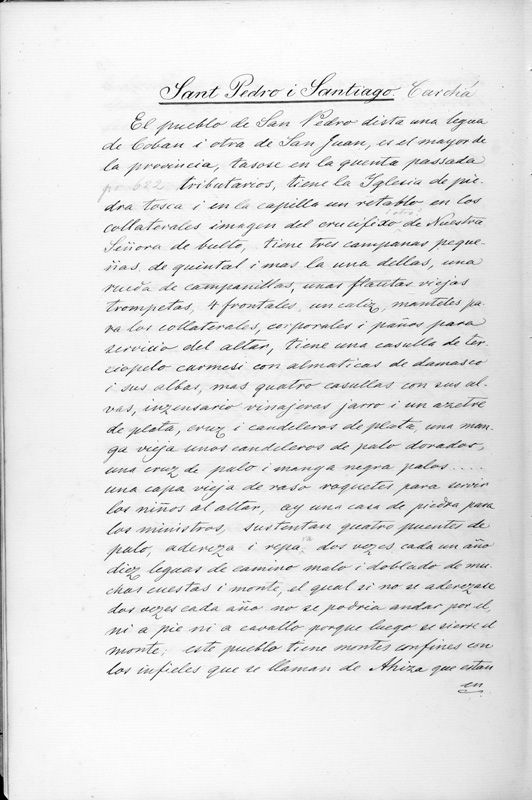 Sant Pedro i Santiago. Carchá
El pueblo de San Pedro dista una legua
de Coban i otra de San Juan, es el mayor de
la provincia, tasose en la quenta passada
por 622 tributarios, tiene la Iglesia de pie-
dra tosca i en la capilla un retablo en los
collaterales imagen del crucifixo i otra de Nuestra
Señora de bulto, tiene tres campanas peque-
ñas de quintal i mas la una dellas, una
rueda de campanillas, unas flautas viejas
trompetas, 4 frontales, un caliz, manteles pa-
ra los collaterales, corporales i paños para
servicio del altar, tiene una casulla de ter-
ciopelo carmesi con almaticas de damasco
i sus albas, mas quatro casullas con sus al-
vas, inzensario vinajeras jarro i un azetre
de plata, cruz i candeleros de plata, una man-
ga vieja unos candeleros de palo dorados,
una cruz de palo i manga negra palos....
una capa vieja de raso roquetes para servir
los niños al altar, ay una casa de piedra para
los ministros, sustentan quatro puentes de
palo, adereza i repara dos vezes cada un año
diez leguas de camino malo i doblado de mu-
chas cuestas i monte, el qual si no se aderezase
dos vezes cada año no se podria andar por el,
ni a pie ni a cavallo porque luego se sierse el
monte; este pueblo tiene montes confines con
los infieles que se llaman de Ahiza que estan
en